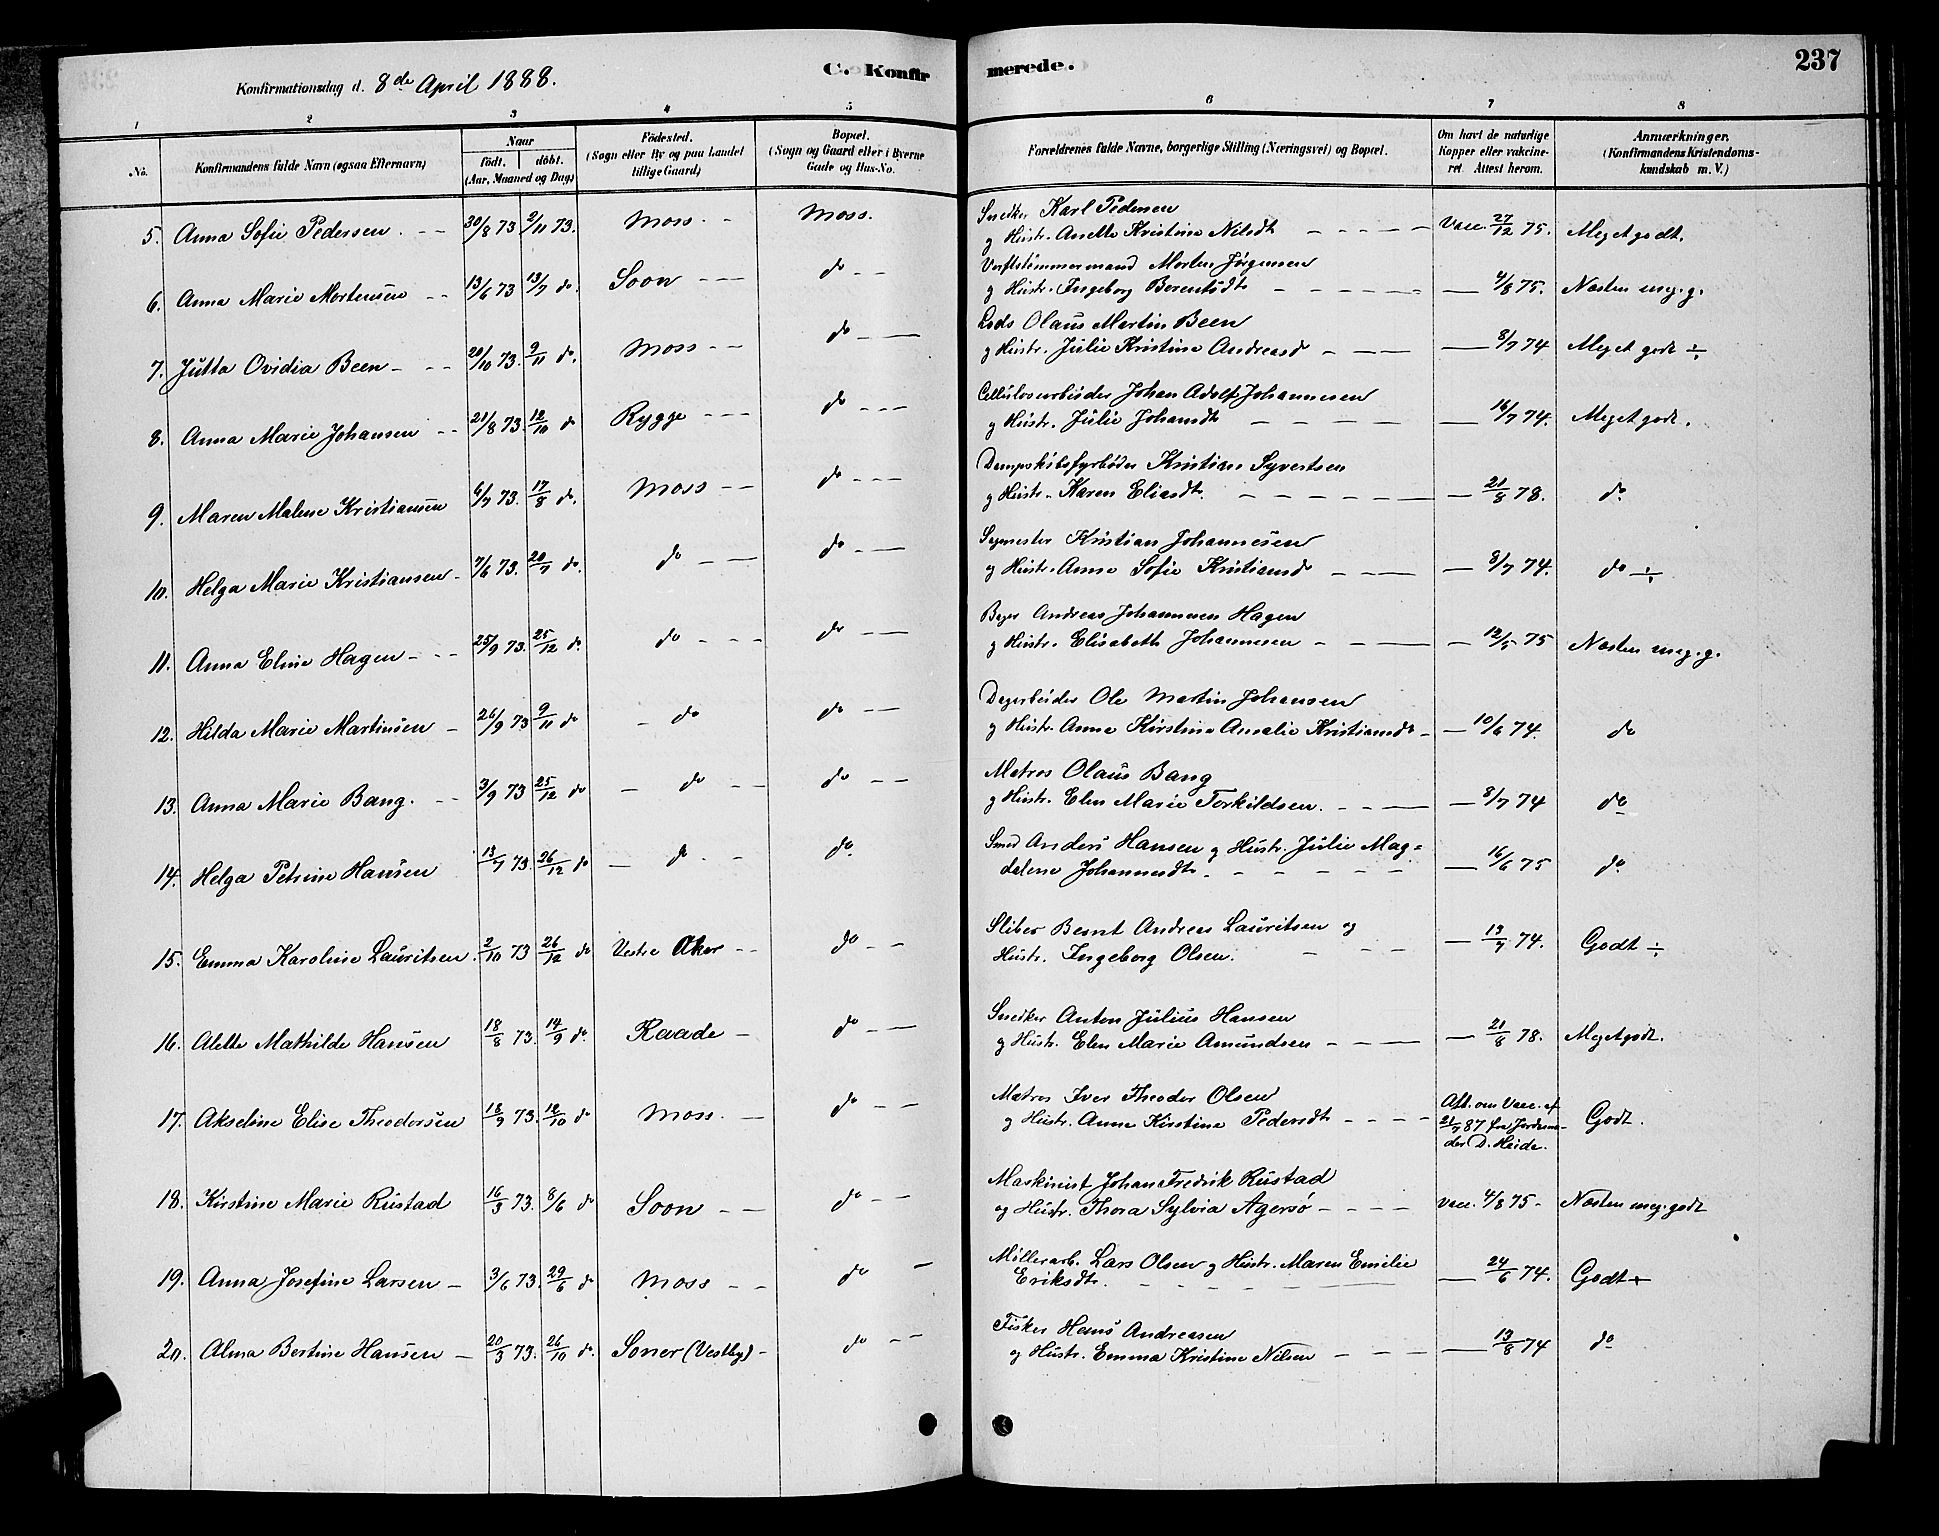 237
C. Konfirmerede.
Konfirmationsdag d. 8de April 1888.
1 2 3 4 5 6 7 8
No. Konfirmandens fulde Navn (ogsaa Efternavn) Naar født. døbt. (Aar, Maaned og Dag) Fødested. (Sogn eller By og paa Landet tillige Gaard) Bopæl. (Sogn og Gaard eller i Byerne Gade og Hus-No. Forældrenes fulde Navne, borgerlige Stilling (Næringsvei) og Bopæl. Om havt de naturlige Kopper eller vakcineret. Attest herom. Anmærkninger. (Konfirmandens Kristendomskundskab m. V.)
5. Anna Sofie Pedersen. 30/8 73 2/11 73. Moss. Moss. Snedker Karl Pedersen
og Hustr. Anette Kristine Nilsdt Vacc. 27/12 75. Meget godt.
6. Anna Marie Mortensen 13/6 73 13/7 do. Soon do Verftstømmermand Morten Jørgensen
og Hustr. Ingeborg Berentsdt 4/8 75. Næsten meg. g.
7. Jutta Ovidia Been 20/10 73. 9/11 do. Moss do Lods Olaus Martin Been
og Hustr. Julie Kristine Andreasd 8/7 74 Meget godt ÷
8. Anna Marie Johansen 21/8 73. 12/10 do Rygge do Cellulosearbeider Johan Adolf Johannesen
og Hustr. Julie Johansdt 16/7 74. Meget godt.
9. Maren Malene Kristiansen 6/7 73. 17/8 do. Moss do Dampskibsfyrbøder Kristian Syvertsen
og Hustr. Karen Eliasdt. 21/8 78. do
10. Helga Marie Kristiansen 7/6 73. 20/7 do. do do Sagmester Kristian Johannesen
og Hustr. Anna Sofie Kristiansd 8/7 74. do ÷
11. Anna Eline Hagen 25/9 73. 25/12 do. do do Andreas Johannesen Hagen
og Hustr. Elisabeth Johannesen 12/5 75 Næsten meg. g.
12. Hilda Marie Martinsen 26/9 73 9/11 do do do Dagarbeider Ole Martin Johansen
og Hustr. Anna Kirstine Amalie Kristiansd 10/6 74. do
13. Anna Marie Bang. 3/9 73 25/12 do do do Matros Olaus Bang
og Hustr. Elen Marie Torkildsen. 8/7 74 do
14. Helga Petrine Hansen 13/7 73. 26/12 do do do. Smed Anders Hansen og Hustr. Julie Mag=
dalene Johannesdt. 16/6 75 do.
15. Emma Karoline Lauritsen. 2/10 73 26/12 do Vestre Aker do Sliber Bernt Andreas Lauritsen og
Hustr. Ingeborg Olsen. 13/7 74. Godt ÷
16. Alette Mathilde Hansen 18/8 73. 14/9 do. Raade do Snedker Anton Julius Hansen
og Hustr. Elen Marie Amundsen 21/8 78. Meget godt.
17. Akseline Elise Theodorsen 18/9 73. 12/10 do Moss. do Matros Iver Theodor Olsen
og Hustr. Anne Kirstine Pedersdt Att. om Vacc. af
21/7 87 fra Jordemo-
der D. Heide. Godt.
18. Kirstine Marie Rustad 16/3 73. 8/6 do Soon do Maskinist Johan Fredrik Rustad
og Hustr. Thora Sylvia Agersø Vacc. 4/8 75 Næsten meg. godt
19. Anna Josefine Larsen 3/6 73. 29/6 do Moss do Møllerarb. Lars Olsen og Hustr. Maren Emilie
Eriksdt. 24/6 74. Godt +
20. Alma Bertine Hansen 20/3 73. 26/10 do. Soner (Vestby) do Fisker Hans Andreasen
og Hustr. Emma Kristine Nilsen 13/8 74 do